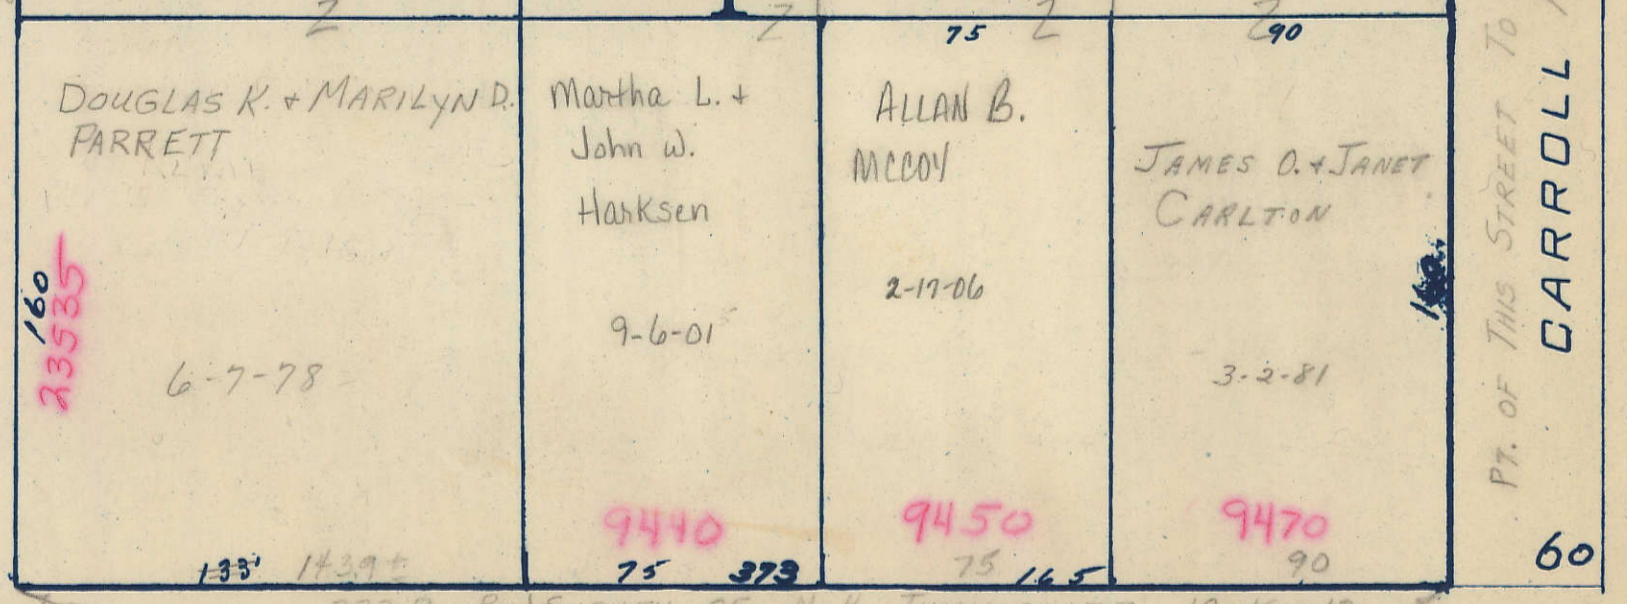 Z
Z
Z
Z
75
90
DOUGLAS K. + MARILYN D.
PARRETT
160
23535
6-7-78
133'
Martha L. +
John W.
Harksen
9-6-01
9440
75
373
ALLAN B.
MCCOY
2-17-06
9450
75
165
JAMES O. + JANET
CARLTON
3-2-81
9470
90
PT. OF THIS STREET TO
CARROLL
60